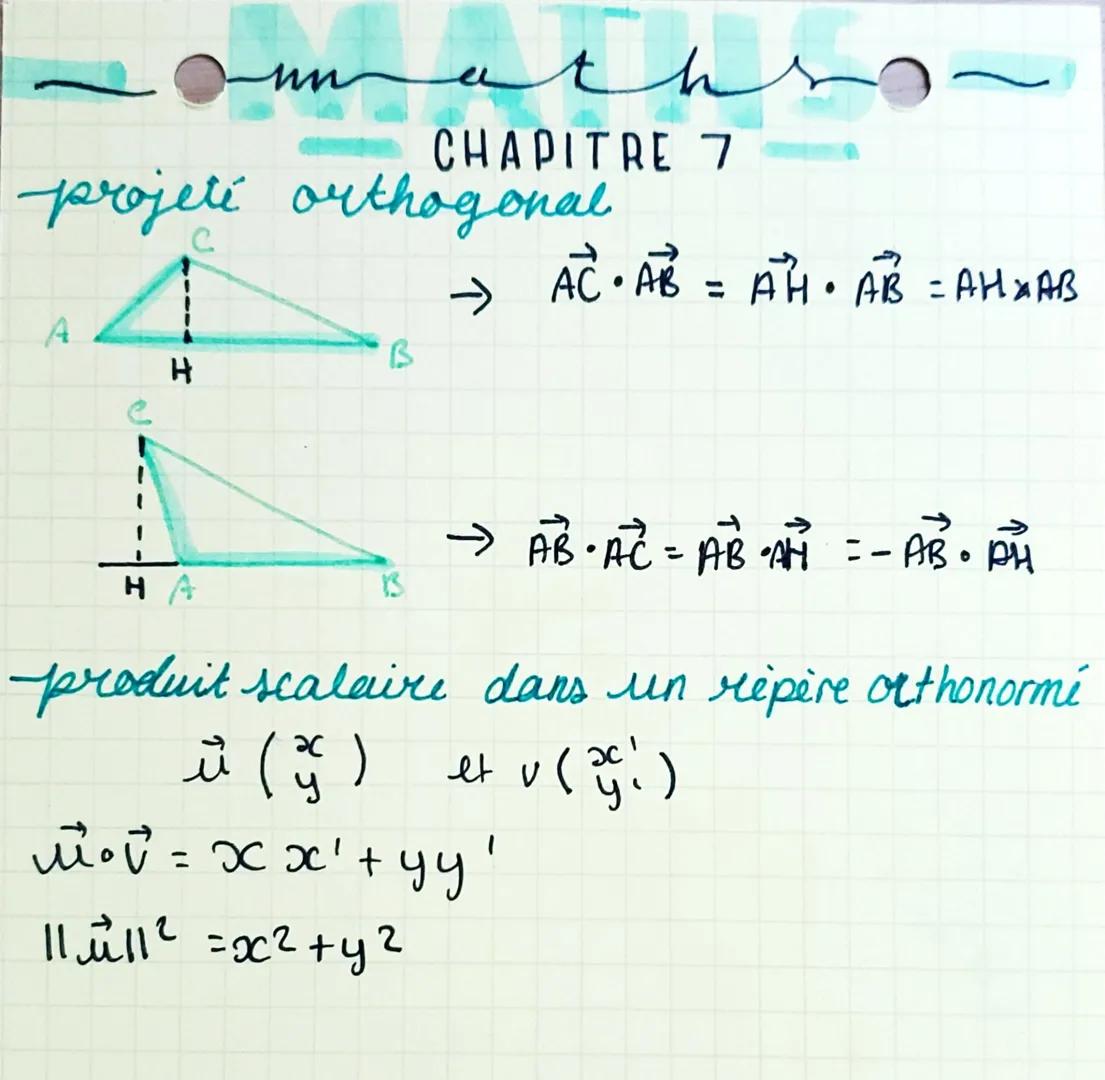 MATHS
maths
CHAPITRE 7
projeté orthogonal
C
A
B
H
→ AC⃗ · AB⃗ = AH⃗ · AB⃗ = AH x AB
C
H A
B
→ AB⃗ · AC⃗ = AB⃗ · AH⃗ = - AB⃗ · AH⃗
produit scalaire dans un répère orthonormé
u⃗ (x y) et v (x' y')
u⃗ · v⃗ = x x' + yy'
||u⃗||² = x² + y²